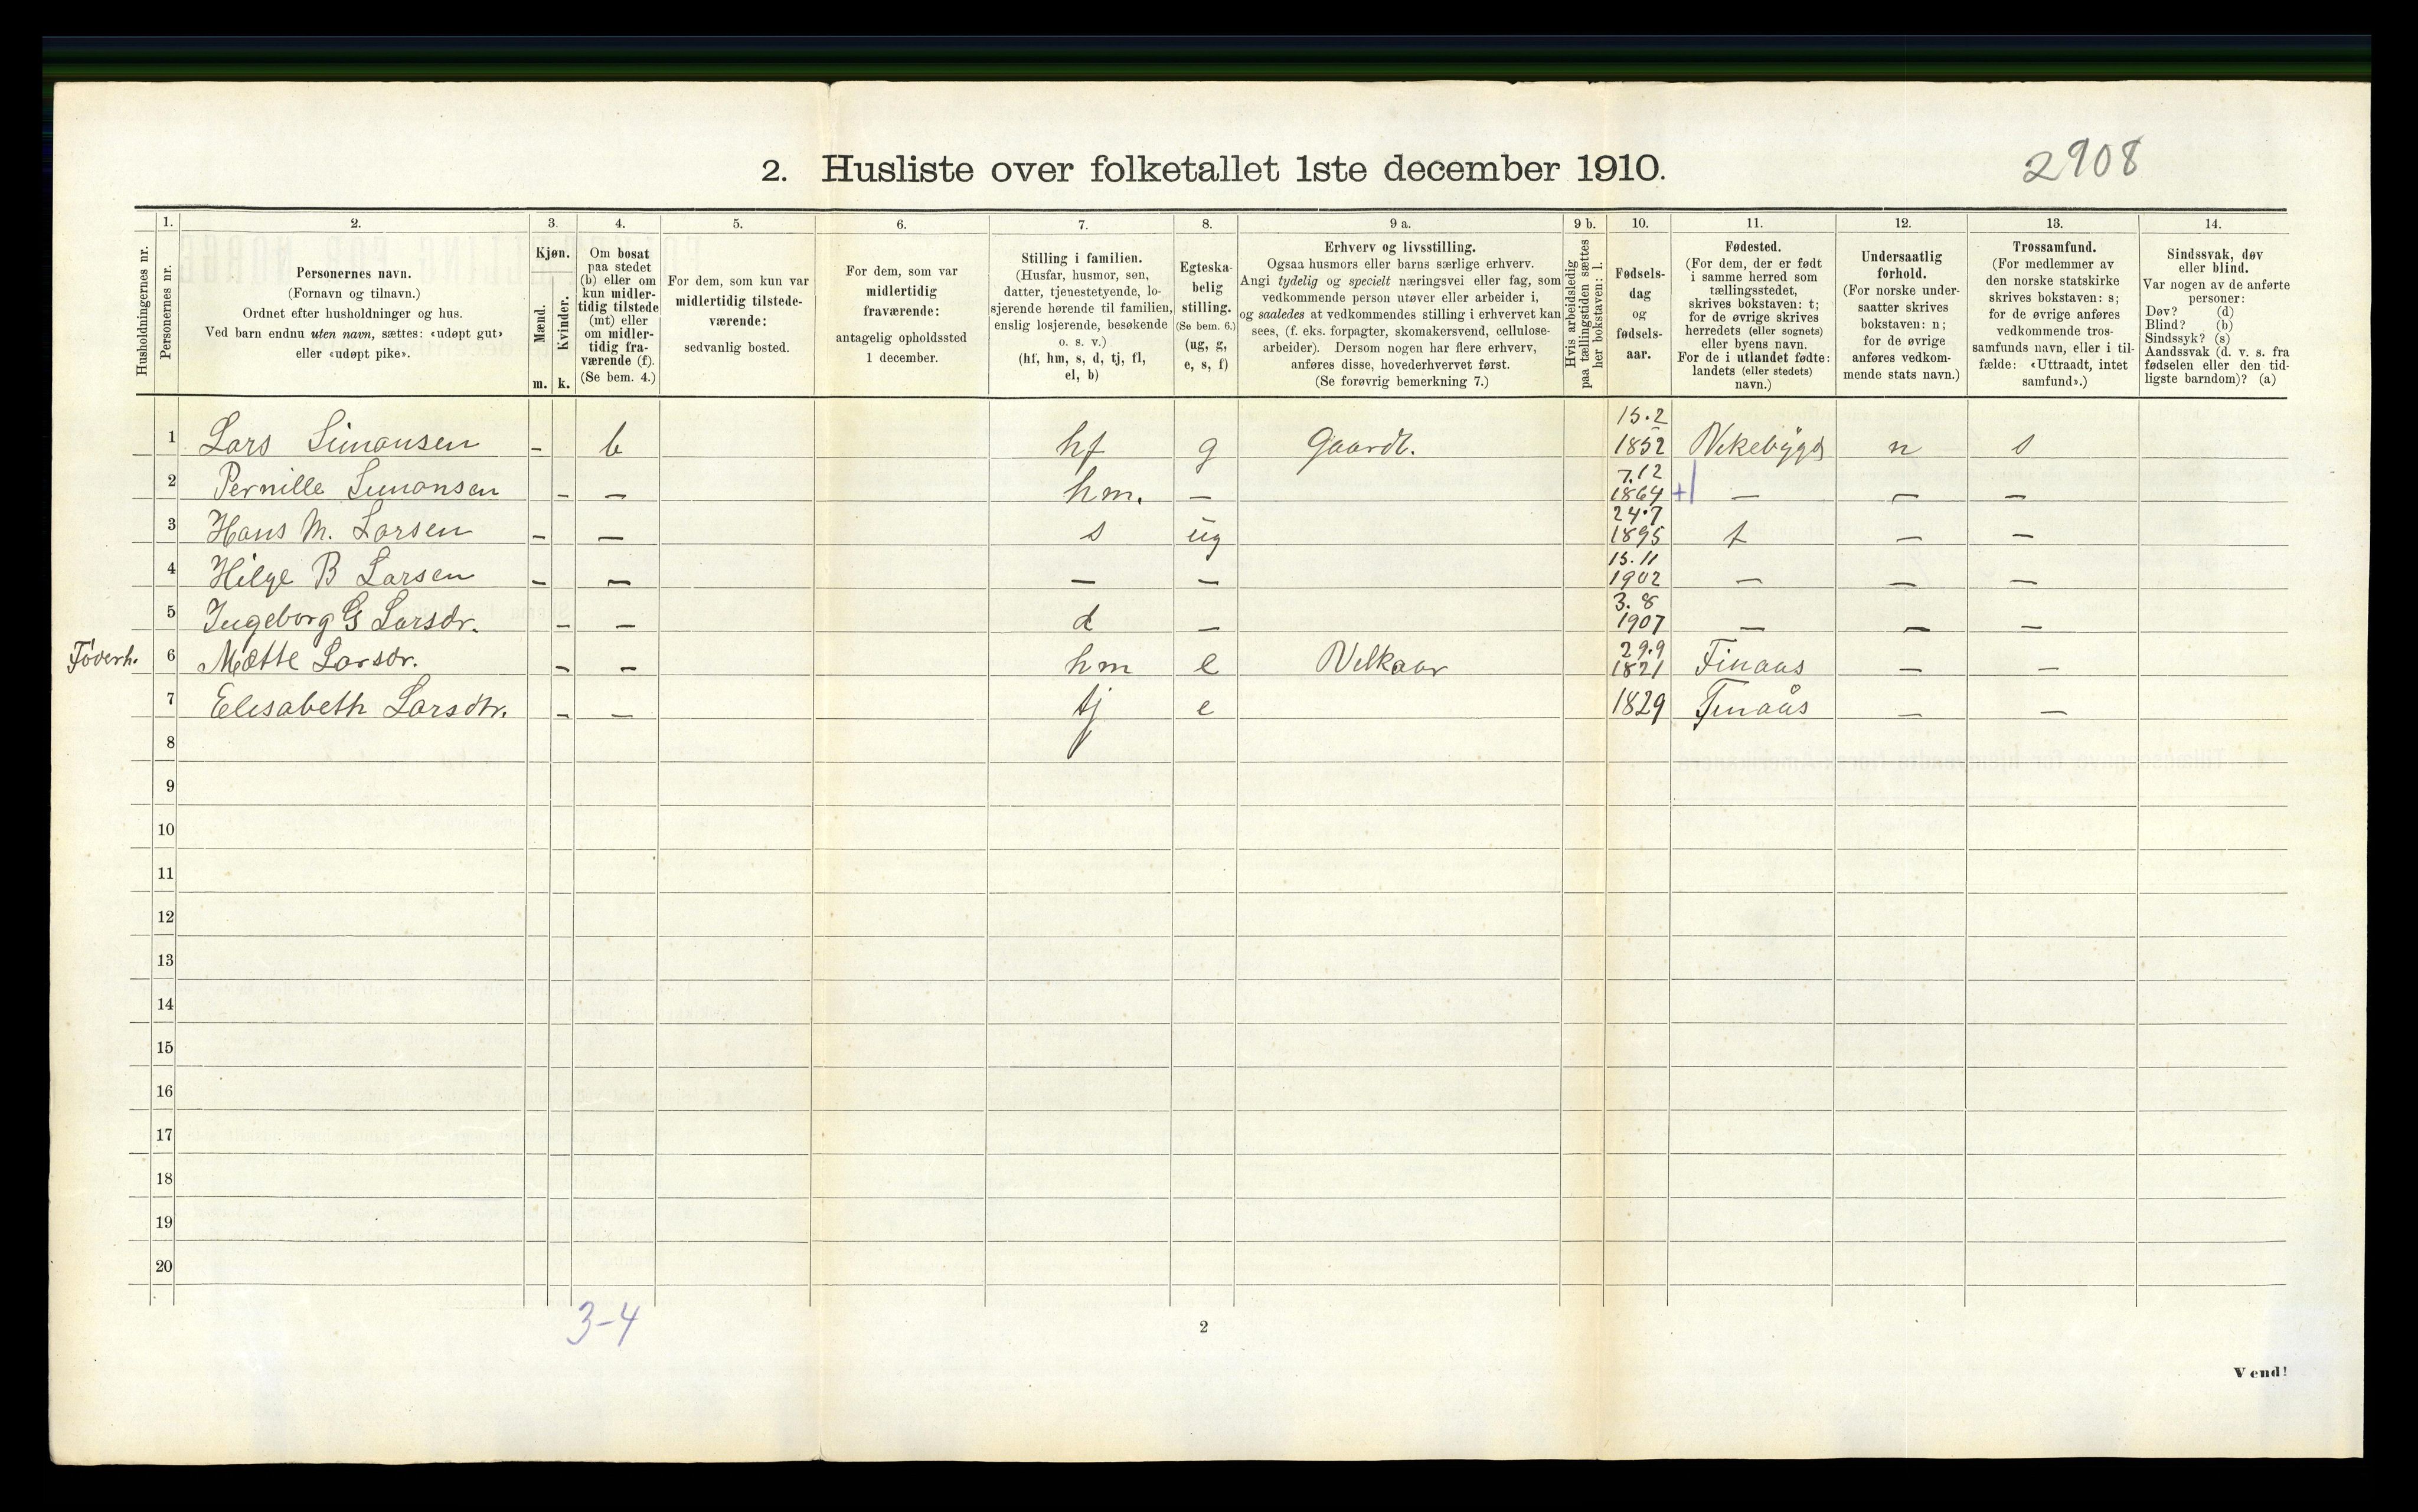 2908
2. Husliste over folketallet 1ste december 1910.
Husholdningernes nr.
1.
Personernes nr.
2.
Personernes navn.
(Fornavn og tilnavn.)
Ordnet efter husholdninger og hus.
Ved barn endnu uten navn, sættes: «udøpt gut»
eller «udøpt pike».
3.
Kjøn.
Mænd.
Kvinder.
m. k.
4.
Om bosat
paa stedet
(b) eller om
kun midler-
tidig tilstede
(mt) eller
om midler-
tidig fra-
værende (f).
(Se bem. 4.)
5.
For dem, som kun var
midlertidig tilstede-
værende:
sedvanlig bosted.
6.
For dem, som var
midlertidig
fraværende:
antagelig opholdssted
1 december.
7.
Stilling i familien.
(Husfar, husmor, søn,
datter, tjenestetyende, lo-
sjerende hørende til familien,
enslig losjerende, besøkende
o. s. v.)
(hf, hm, s, d, tj, fl,
el, b)
8.
Egteska-
belig
stilling.
(Se bem. 6.)
(ug, g,
e, s, f)
9 a.
Erhverv og livsstilling.
Ogsaa husmors eller barns særlige erhverv.
Angi tydelig og specielt næringsvei eller fag, som
vedkommende person utøver eller arbeider i,
og saaledes at vedkommendes stilling i erhvervet kan
sees, (f. eks. forpagter, skomakersvend, cellulose-
arbeider). Dersom nogen har flere erhverv,
anføres disse, hovederhvervet først.
(Se forøvrig bemerkning 7.)
9 b.
Hvis arbeidsledig
paa tællingstiden sættes
her bokstaven: l.
10.
Fødsels-
dag
og
fødsels-
aar.
11.
Fødested.
(For dem, der er født
i samme herred som
tællingsstedet,
skrives bokstaven: t;
for de øvrige skrives
herredets (eller sognets)
eller byens navn.
For de i utlandet fødte:
landets (eller stedets)
navn.)
12.
Undersaatlig
forhold.
(For norske under-
saatter skrives
bokstaven: n;
for de øvrige
anføres vedkom-
mende stats navn.)
13.
Trossamfund.
(For medlemmer av
den norske statskirke
skrives bokstaven: s;
for de øvrige anføres
vedkommende tros-
samfunds navn, eller i til-
fælde: «Uttraadt, intet
samfund».)
14.
Sindssvak, døv
eller blind.
Var nogen av de anførte
personer:
Døv? (d)
Blind? (b)
Sindssyk? (s)
Aandssvak (d. v. s. fra
fødselen eller den tid-
ligste barndom)? (a)
1 Lars Simonsen - b hf g Gaardb. 15.2 1852 Vikebygd n s
2 Pernille Simonsen - - hm. - 7.12 1864 +| - - -
3 Hans M. Larsen - - s ug 24.7 1895 t - -
4 Hilge B Larsen - - - - 15.11 1902 - - -
5 Ingeborg G Larsdr. - - d - 3.8 1907 - - -
Føderh. 6 Mætte Larsdr. - - hm e Vilkaar 29.9 1821 Finaas - -
7 Elisabeth Larsdtr. - - tj e 1829 Finaås - -
8
9
10
11
12
13
14
15
16
17
18
19
20
3-4
2
Vend!